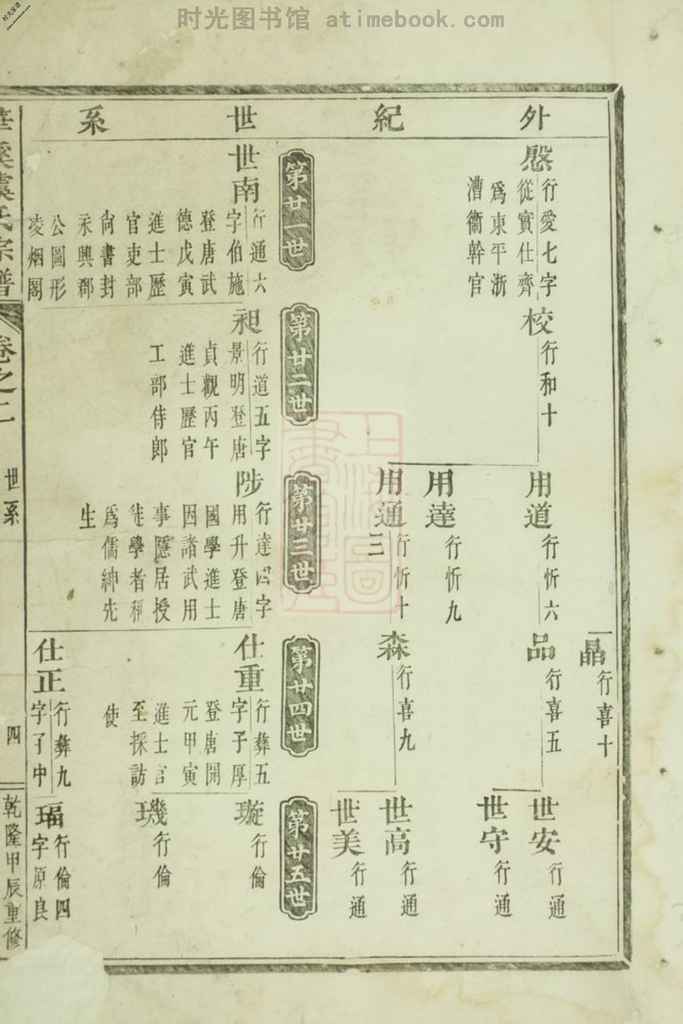 时光图书馆 atimebook.com
外紀世系
慇
行愛七字
從實仕齊
爲東平浙
漕衞幹官
校
行和十
用道
行忻六
用達
行忻九
用通
行忻十
三
晶
行喜十
品
行喜五
森
行喜九
世安
行通
世守
行通
世高
行通
世美
行通
第廿一世
第廿二世
第廿三世
第廿四世
第廿五世
世南
行通六
字伯施
登唐武
德戊寅
進士歷
官吏部
尙書封
永興郡
公圖形
凌烟閣
昶
行道五字
景明登唐
貞觀丙午
進士歷官
工部侍郎
陟
行達四字
用升登唐
國學進士
因諸武用
事隱居授
徒學者稱
爲儒紳先
生
仕重
行彝五
字子厚
登唐開
元甲寅
進士官
至採訪
使
仕正
行彝九
字子中
璇
行倫
璣
行倫
瑙
行倫四
字原良
虞氏宗譜
卷之二
世系
四
乾隆甲辰重修